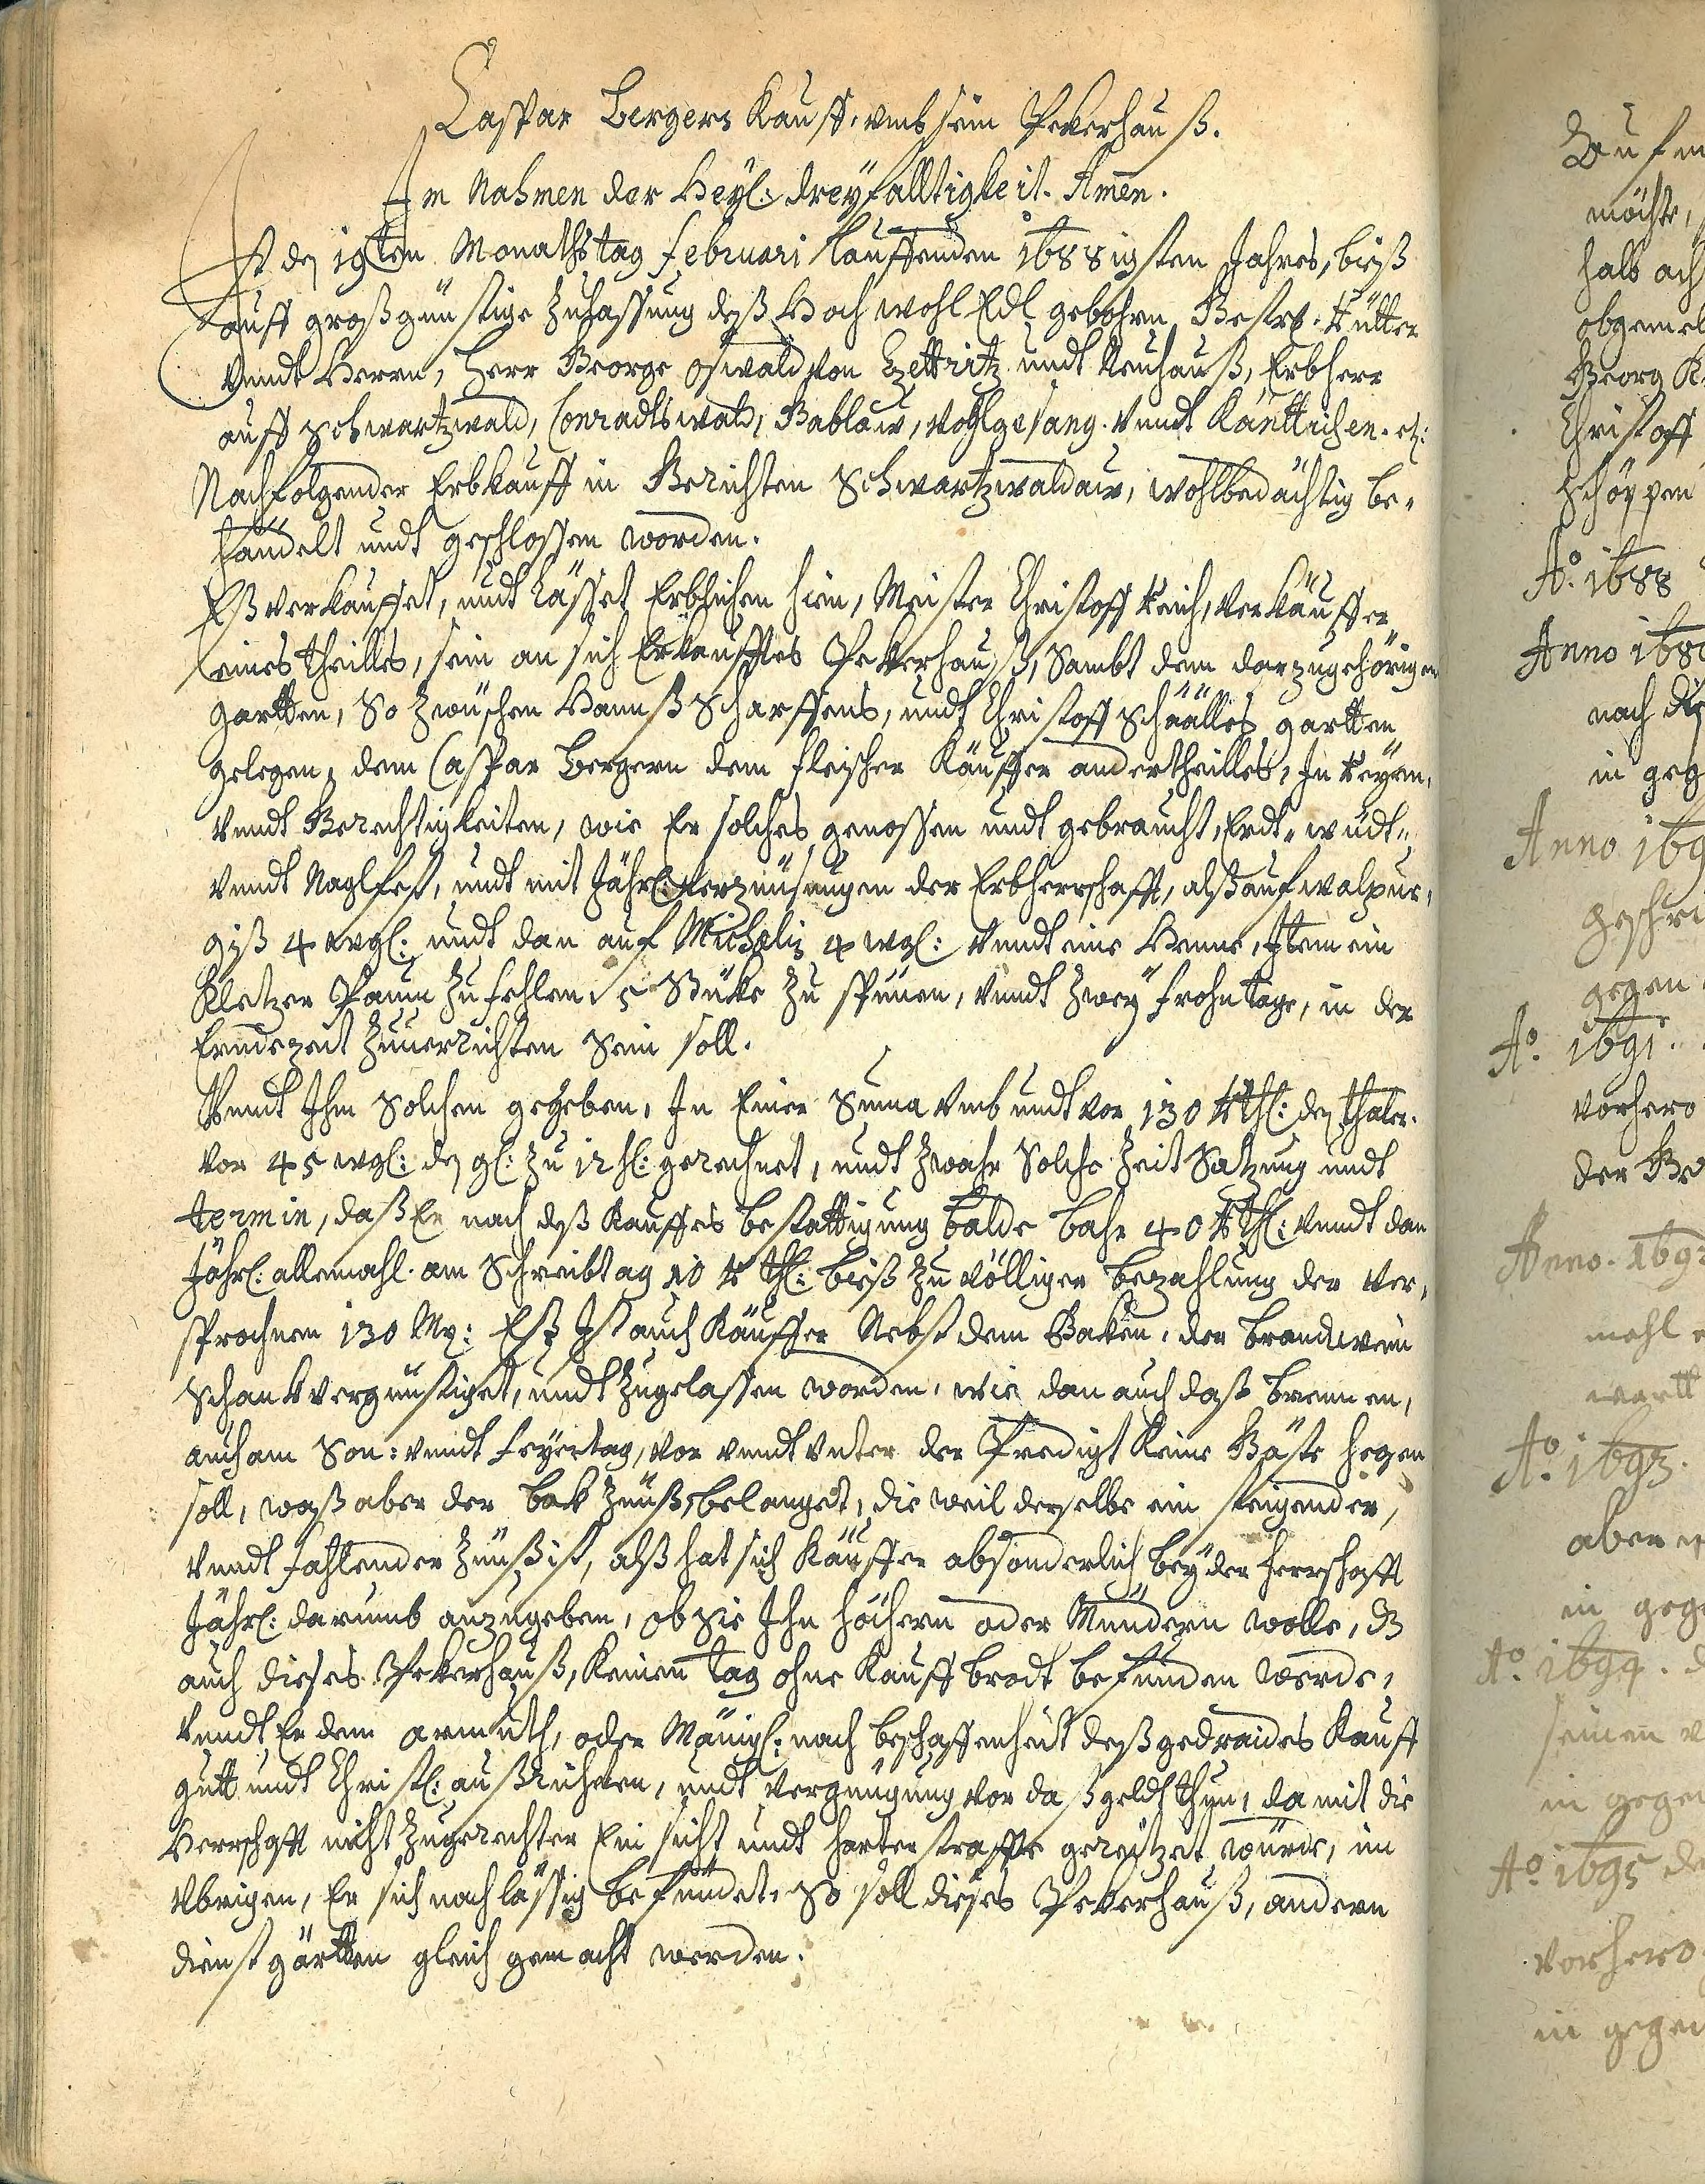 Caspar Bergers Kauff, umb sein Pekerhauß.
Im Nahmen der Heyl: dreyfalltigkeit. Amen.
Ist dn 19ten Monathstag februari lauffenden 1688igsten Jahres, bieß
auff großgünstige Zulassung deß Hoch wohl Edl gebohrn Gestr: Rütter
vnndt Herrn, Herr George Oswald von Tzettritz undt Neuhauß, Erbherr
auff Schwartzwald, Conradtswald, Gablaw, Voglgesang. vnndt Känttichen. etz:
Nachfolgender Erbkauff in Gerichten Schwartzwaldaw, wohlbedächtig be,
handelt undt geschlossen worden.
Eß verkauffet, undt Lässet Erblichen hien, Meister Christoff Reich, Verkäuffer
eines theilles, sein an sich Erkaufftes Pekerhauß, Sambt dem darzugehörigen
gartten, So zwüschen Hannß Scharffens, undt Christoff Schäälles gartten
gelegen, dem Caspar Bergern dem fleischer Käuffer andertheilles, In Reyen,
vnndt Gerechtigkeiten, wie Er solches genossen undt gebraucht, Erdt- wüdt-
vnndt Naglfest, undt mit Jährl: verzünsungen der Erbherrschafft, alß auf walpur,
gyß 4 wgl: undt dan auf Michaelis 4 wgl: vnndt eine Henne, Item ein
Kletzer Paum zu fehlen, 5 Stüke zu spünen, vnndt zwey frohntage, in der
Erndezeit zuuerrichten sein soll.
Vnndt Ihm Solchen gegeben, In Einer Suma vmb undt vor 130 Rthl: dn thaler.
vor 45 wgl: dn gl: zu 12 hl: gerechnet, undt zwahr Solche Zeit Satzung undt
termin, daß Er nach deß Kauffes bestattigung balde bahr 40 Rthl: vnndt dan
Jährl: allemahl am Schreibtag 10 Rthl: bieß zu völliger bezahlung der ver,
sprochnen 130 Mg: Eß Ist auch Käuffer Nebst dem Baken, der brandwein
Schank vergünstiget, undt zugelassen worden, wie dan auch daß brennen,
auch am Son: vnndt Feyertag, vor vnndt vnter der Predigt Keine Gäste hegen
soll, waß aber der bak Zünß belanget, die weil derselbe ein steigender,
vnndt fahlender Zünß ist, alß hat sich Käuffer absonderlich bey der Herrschafft
Jährl: darumb anzugeben, ob sie Ihn höchern oder Mündern wolle, dß
auch dieses Pekerhauß, Keinen tag ohne Kauff brodt befunden werde,
vnndt Er dem armuth, oder Mänigl: nach beschaffenheit deß gedraides Kauff
gutt undt Christl: außrichten, undt vergnügung vor daß geldt thun, damit die
Herrschafft nicht zugerechter Ein sicht undt harter straffe gereitzet würde, im
Vbrigen, Er sich nachlässig befündet, So soll dieses Pekerhauß, andern
dienstgärtten gleich gemacht werden.
möchte,
halb ach
obgemel
Georg K
Christoff
Schöppen
Ao. 1688
Anno 168
nach
in geg
Anno 169
gegen
Ao. 1691.
vorhero
der Ge
Anno. 169
mahl
Ao. 1693.
aber
in geg
Ao. 1694. d
seinen
in gegen
Ao. 1695 de
vorhero
in gegen